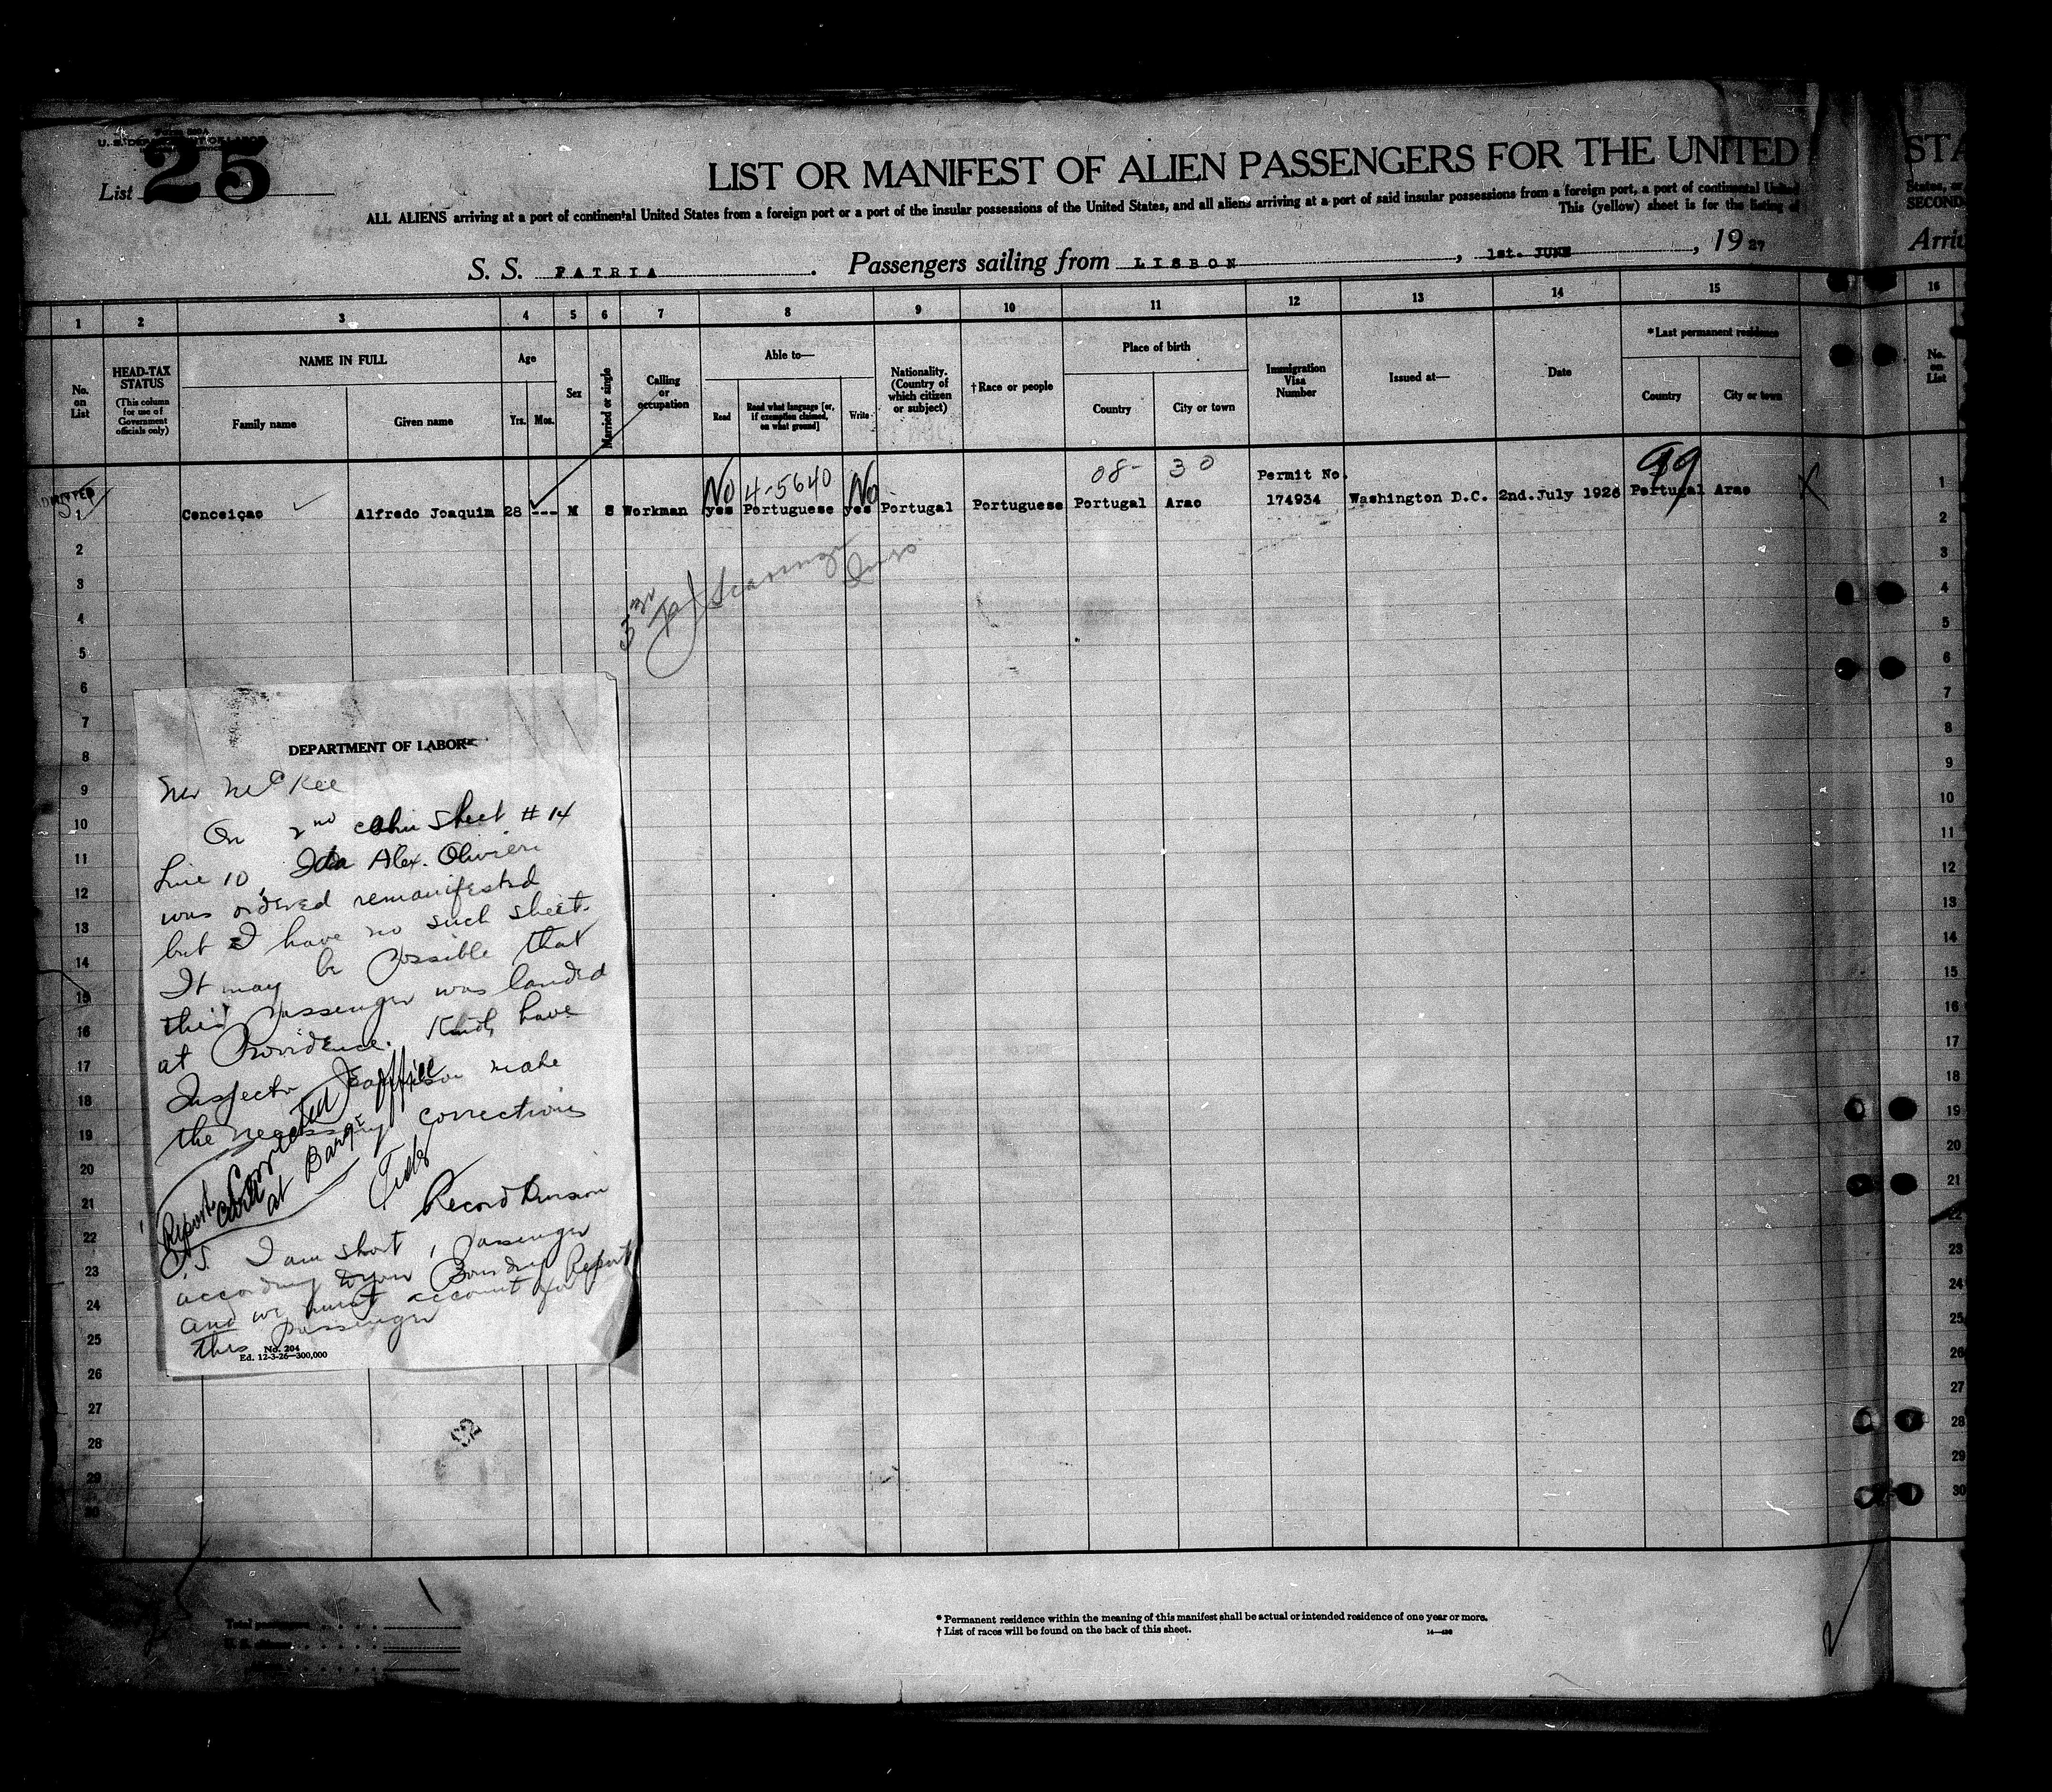 U. S. DEPARTMENT OF LABOR
List 25
LIST OR MANIFEST OF ALIEN PASSENGERS FOR THE UNITED STA
ALL ALIENS arriving at a port of continental United States from a foreign port or a port of the insular possessions of the United States, and all aliens arriving at a port of said insular possessions from a foreign port, a port of continental United States, or
This (yellow) sheet is for the listing of SECOND
S. S. PATRIA. Passengers sailing from LISBON, 1st. JUNE, 1927 Arri
1 2 3 4 5 6 7 8 9 10 11 12 13 14 15 16
No. on List
HEAD-TAX STATUS (This column for use of Government officials only)
NAME IN FULL
Family name Given name
Age
Yrs. Mos.
Sex
Married or single
Calling or occupation
Able to—
Read Read what language [or, if exemption claimed, on what ground] Write
Nationality. (Country of which citizen or subject)
†Race or people
Place of birth
Country City or town
Immigration Visa Number
Issued at—
Date
*Last permanent residence
Country City or town
No. on List
No 4-5640 No 08- 30 Permit No. 99
1 Conceiçao Alfredo Joaquim 28 --- M S Workman yes Portuguese yes Portugal Portuguese Portugal Arao 174934 Washington D.C. 2nd.July 1926 Portugal Arao 1
2 2
3 3
4 4
5 5
6 6
7 7
8 8
9 9
10 10
11 11
12 12
13 13
14 14
15 15
16 16
17 17
18 18
19 19
20 20
21 21
22 22
23 23
24 24
25 25
26 26
27 27
28 28
29 29
30 30
DEPARTMENT OF LABOR
Mr McKee
On 2nd cabin sheet # 14
Line 10, Ida Alex. Olivieri
was ordered remanifested
but I have no such sheet.
It may be possible that
this passenger was landed
at Providence. Kindly have
Inspector make
the necessary corrections
Corrected
at Barge Office
Report
Record Division
P.S. I am short 1 passenger
according to your Boarding Report
and we must account for
this passenger
No. 204
Ed. 12-3-26—300,000
Total passengers
* Permanent residence within the meaning of this manifest shall be actual or intended residence of one year or more.
† List of races will be found on the back of this sheet.